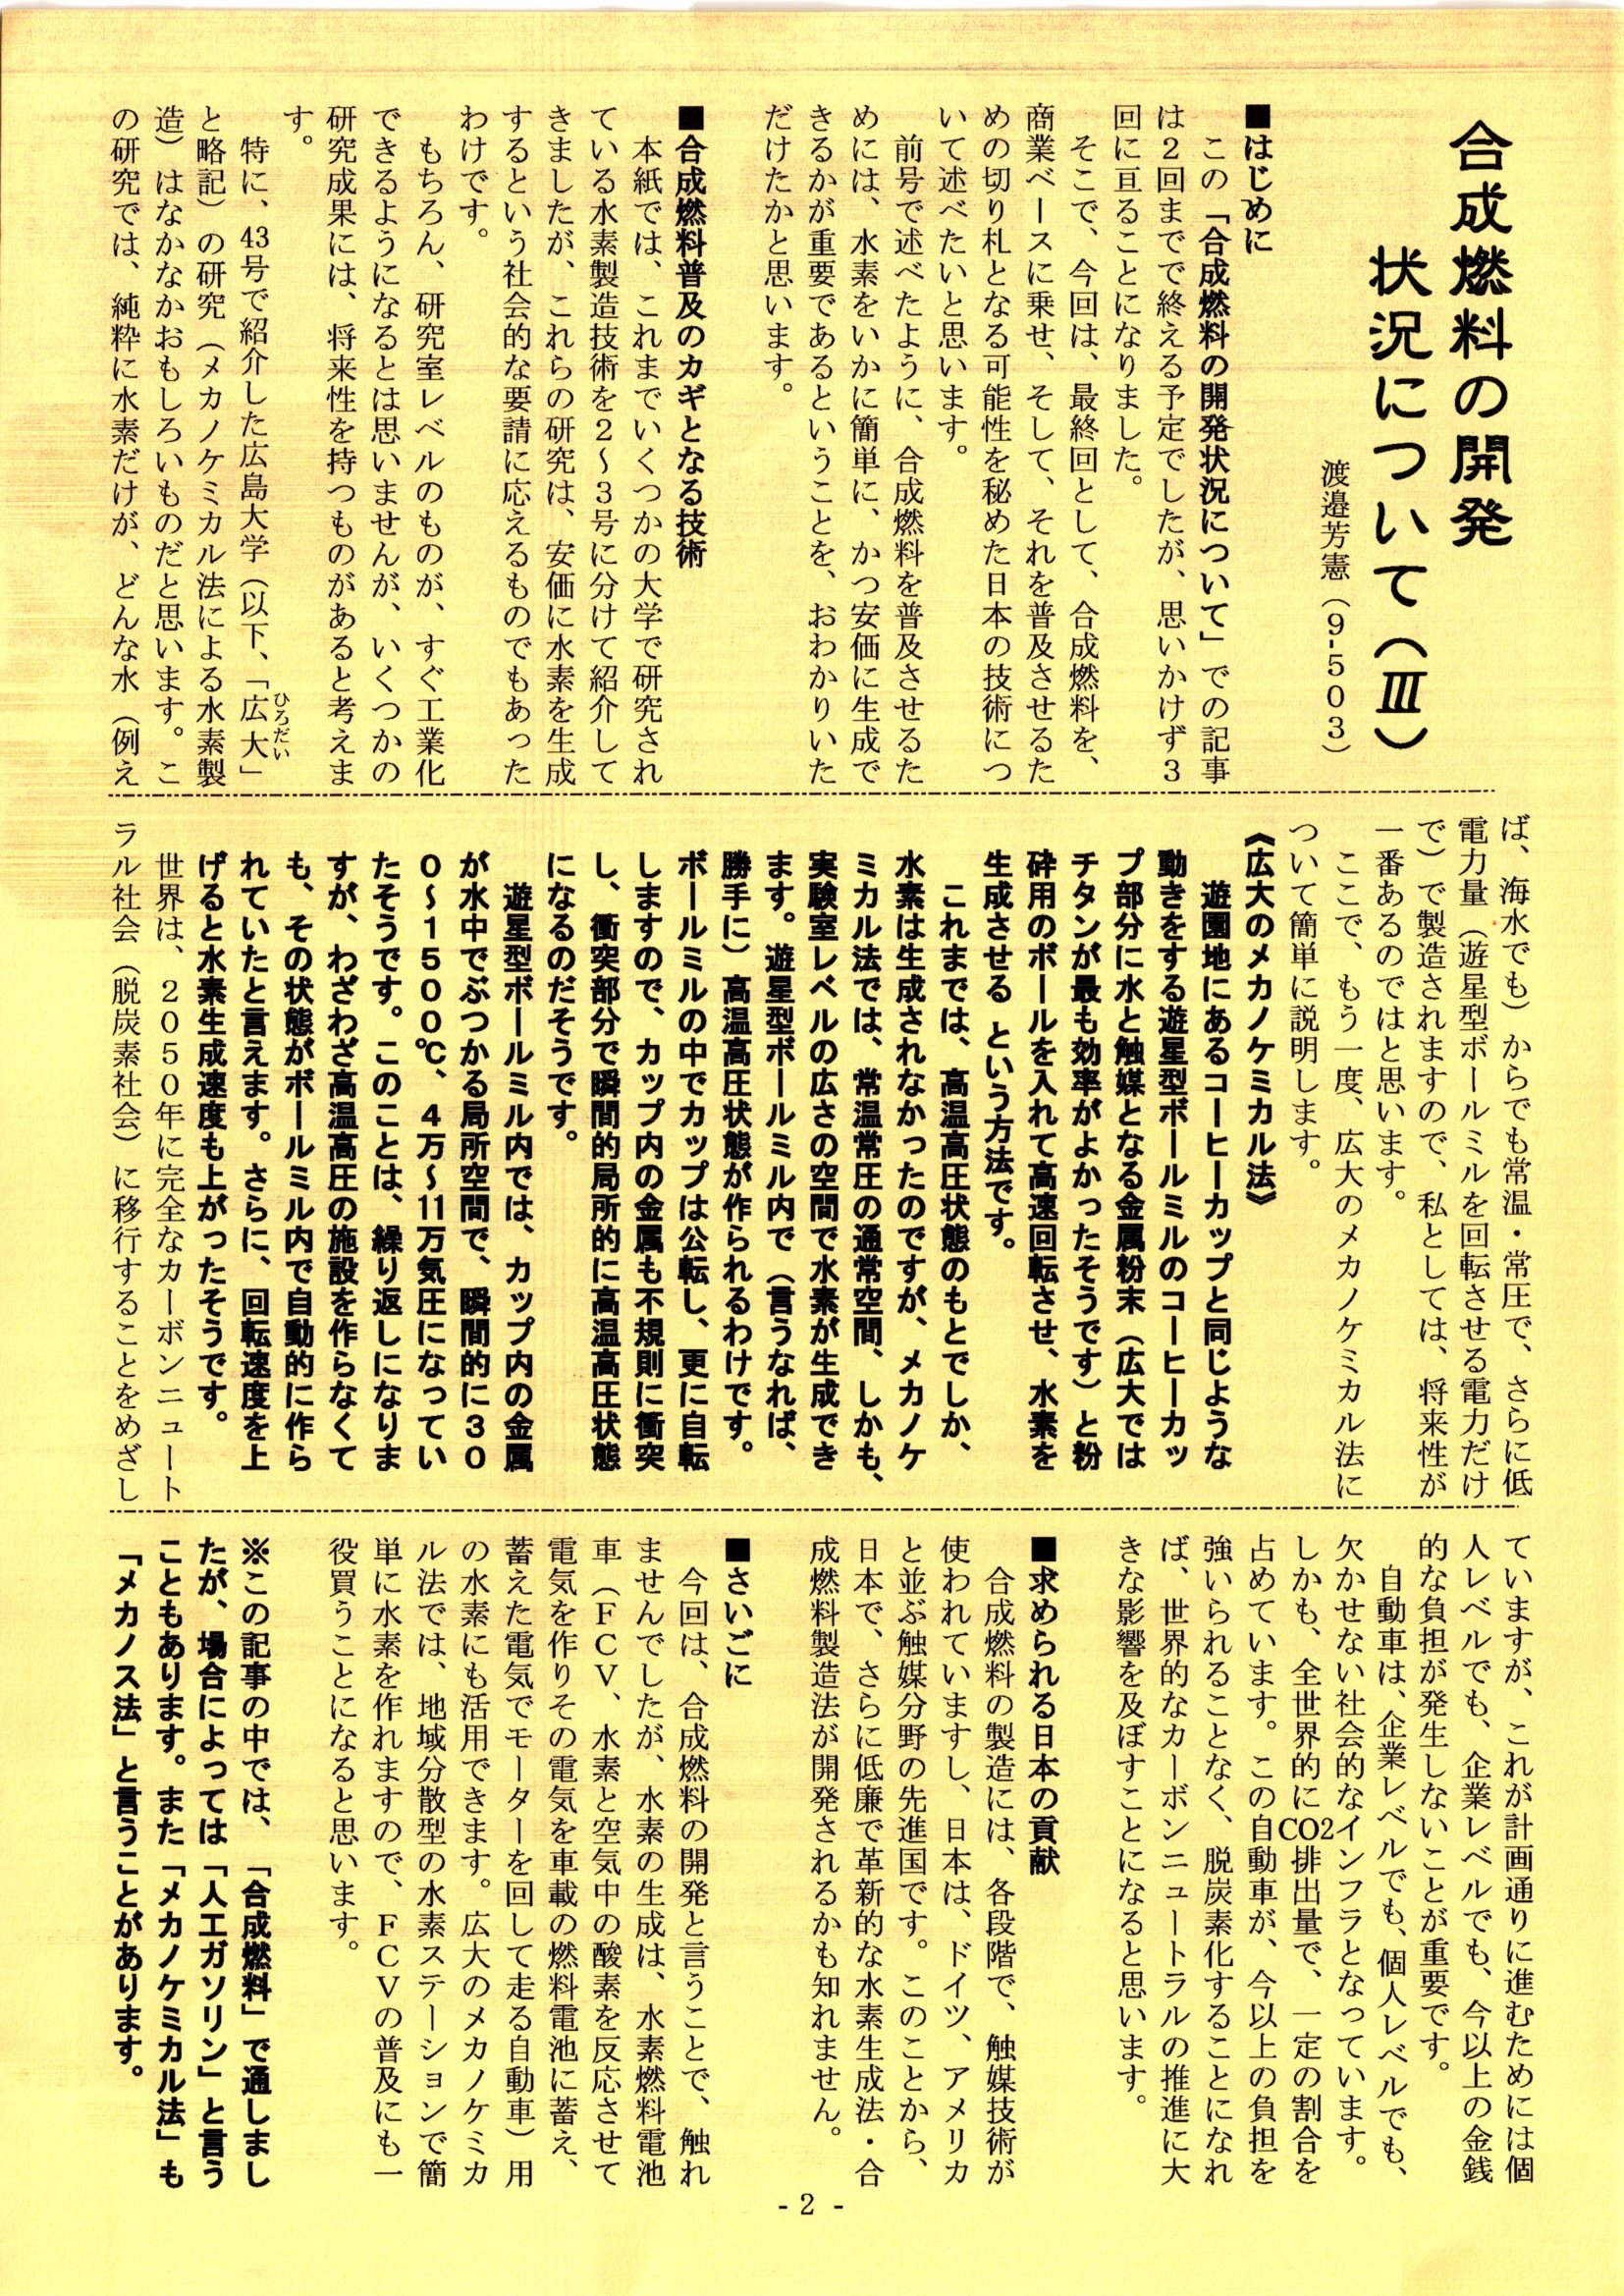 合成燃料の開発
状況について（Ⅲ）
渡邉芳憲（9-503）
■はじめに
この「合成燃料の開発状況について」での記事
は２回までで終える予定でしたが、思いかけず３
回に亘ることになりました。
そこで、今回は、最終回として、合成燃料を、
商業ベースに乗せ、そして、それを普及させるた
めの切り札となる可能性を秘めた日本の技術につ
いて述べたいと思います。
前号で述べたように、合成燃料を普及させるた
めには、水素をいかに簡単に、かつ安価に生成で
きるかが重要であるということを、おわかりいた
だけたかと思います。
■合成燃料普及のカギとなる技術
本紙では、これまでいくつかの大学で研究され
ている水素製造技術を２～３号に分けて紹介して
きましたが、これらの研究は、安価に水素を生成
するという社会的な要請に応えるものでもあった
わけです。
もちろん、研究室レベルのものが、すぐ工業化
できるようになるとは思いませんが、いくつかの
研究成果には、将来性を持つものがあると考えま
す。
特に、43号で紹介した広島大学（以下、「広大」ひろだい
と略記）の研究（メカノケミカル法による水素製
造）はなかなかおもしろいものだと思います。こ
の研究では、純粋に水素だけが、どんな水（例え
ば、海水でも）からでも常温・常圧で、さらに低
電力量（遊星型ボールミルを回転させる電力だけ
で）で製造されますので、私としては、将来性が
一番あるのではと思います。
ここで、もう一度、広大のメカノケミカル法に
ついて簡単に説明します。
《広大のメカノケミカル法》
遊園地にあるコーヒーカップと同じような
動きをする遊星型ボールミルのコーヒーカッ
プ部分に水と触媒となる金属粉末（広大では
チタンが最も効率がよかったそうです）と粉
砕用のボールを入れて高速回転させ、水素を
生成させる という方法です。
これまでは、高温高圧状態のもとでしか、
水素は生成されなかったのですが、メカノケ
ミカル法では、常温常圧の通常空間、しかも、
実験室レベルの広さの空間で水素が生成でき
ます。遊星型ボールミル内で（言うなれば、
勝手に）高温高圧状態が作られるわけです。
ボールミルの中でカップは公転し、更に自転
しますので、カップ内の金属も不規則に衝突
し、衝突部分で瞬間的局所的に高温高圧状態
になるのだそうです。
遊星型ボールミル内では、カップ内の金属
が水中でぶつかる局所空間で、瞬間的に３０
０～１５００℃、４万～11万気圧になってい
たそうです。このことは、繰り返しになりま
すが、わざわざ高温高圧の施設を作らなくて
も、その状態がボールミル内で自動的に作ら
れていたと言えます。さらに、回転速度を上
げると水素生成速度も上がったそうです。
世界は、２０５０年に完全なカーボンニュート
ラル社会（脱炭素社会）に移行することをめざし
ていますが、これが計画通りに進むためには個
人レベルでも、企業レベルでも、今以上の金銭
的な負担が発生しないことが重要です。
自動車は、企業レベルでも、個人レベルでも、
欠かせない社会的なインフラとなっています。
しかも、全世界的にCO2排出量で、一定の割合を
占めています。この自動車が、今以上の負担を
強いられることなく、脱炭素化することになれ
ば、世界的なカーボンニュートラルの推進に大
きな影響を及ぼすことになると思います。
■求められる日本の貢献
合成燃料の製造には、各段階で、触媒技術が
使われていますし、日本は、ドイツ、アメリカ
と並ぶ触媒分野の先進国です。このことから、
日本で、さらに低廉で革新的な水素生成法・合
成燃料製造法が開発されるかも知れません。
■さいごに
今回は、合成燃料の開発と言うことで、触れ
ませんでしたが、水素の生成は、水素燃料電池
車（ＦＣＶ、水素と空気中の酸素を反応させて
電気を作りその電気を車載の燃料電池に蓄え、
蓄えた電気でモーターを回して走る自動車）用
の水素にも活用できます。広大のメカノケミカ
ル法では、地域分散型の水素ステーションで簡
単に水素を作れますので、ＦＣＶの普及にも一
役買うことになると思います。
※この記事の中では、「合成燃料」で通しまし
たが、場合によっては「人工ガソリン」と言う
こともあります。また「メカノケミカル法」も
「メカノス法」と言うことがあります。
- 2 -